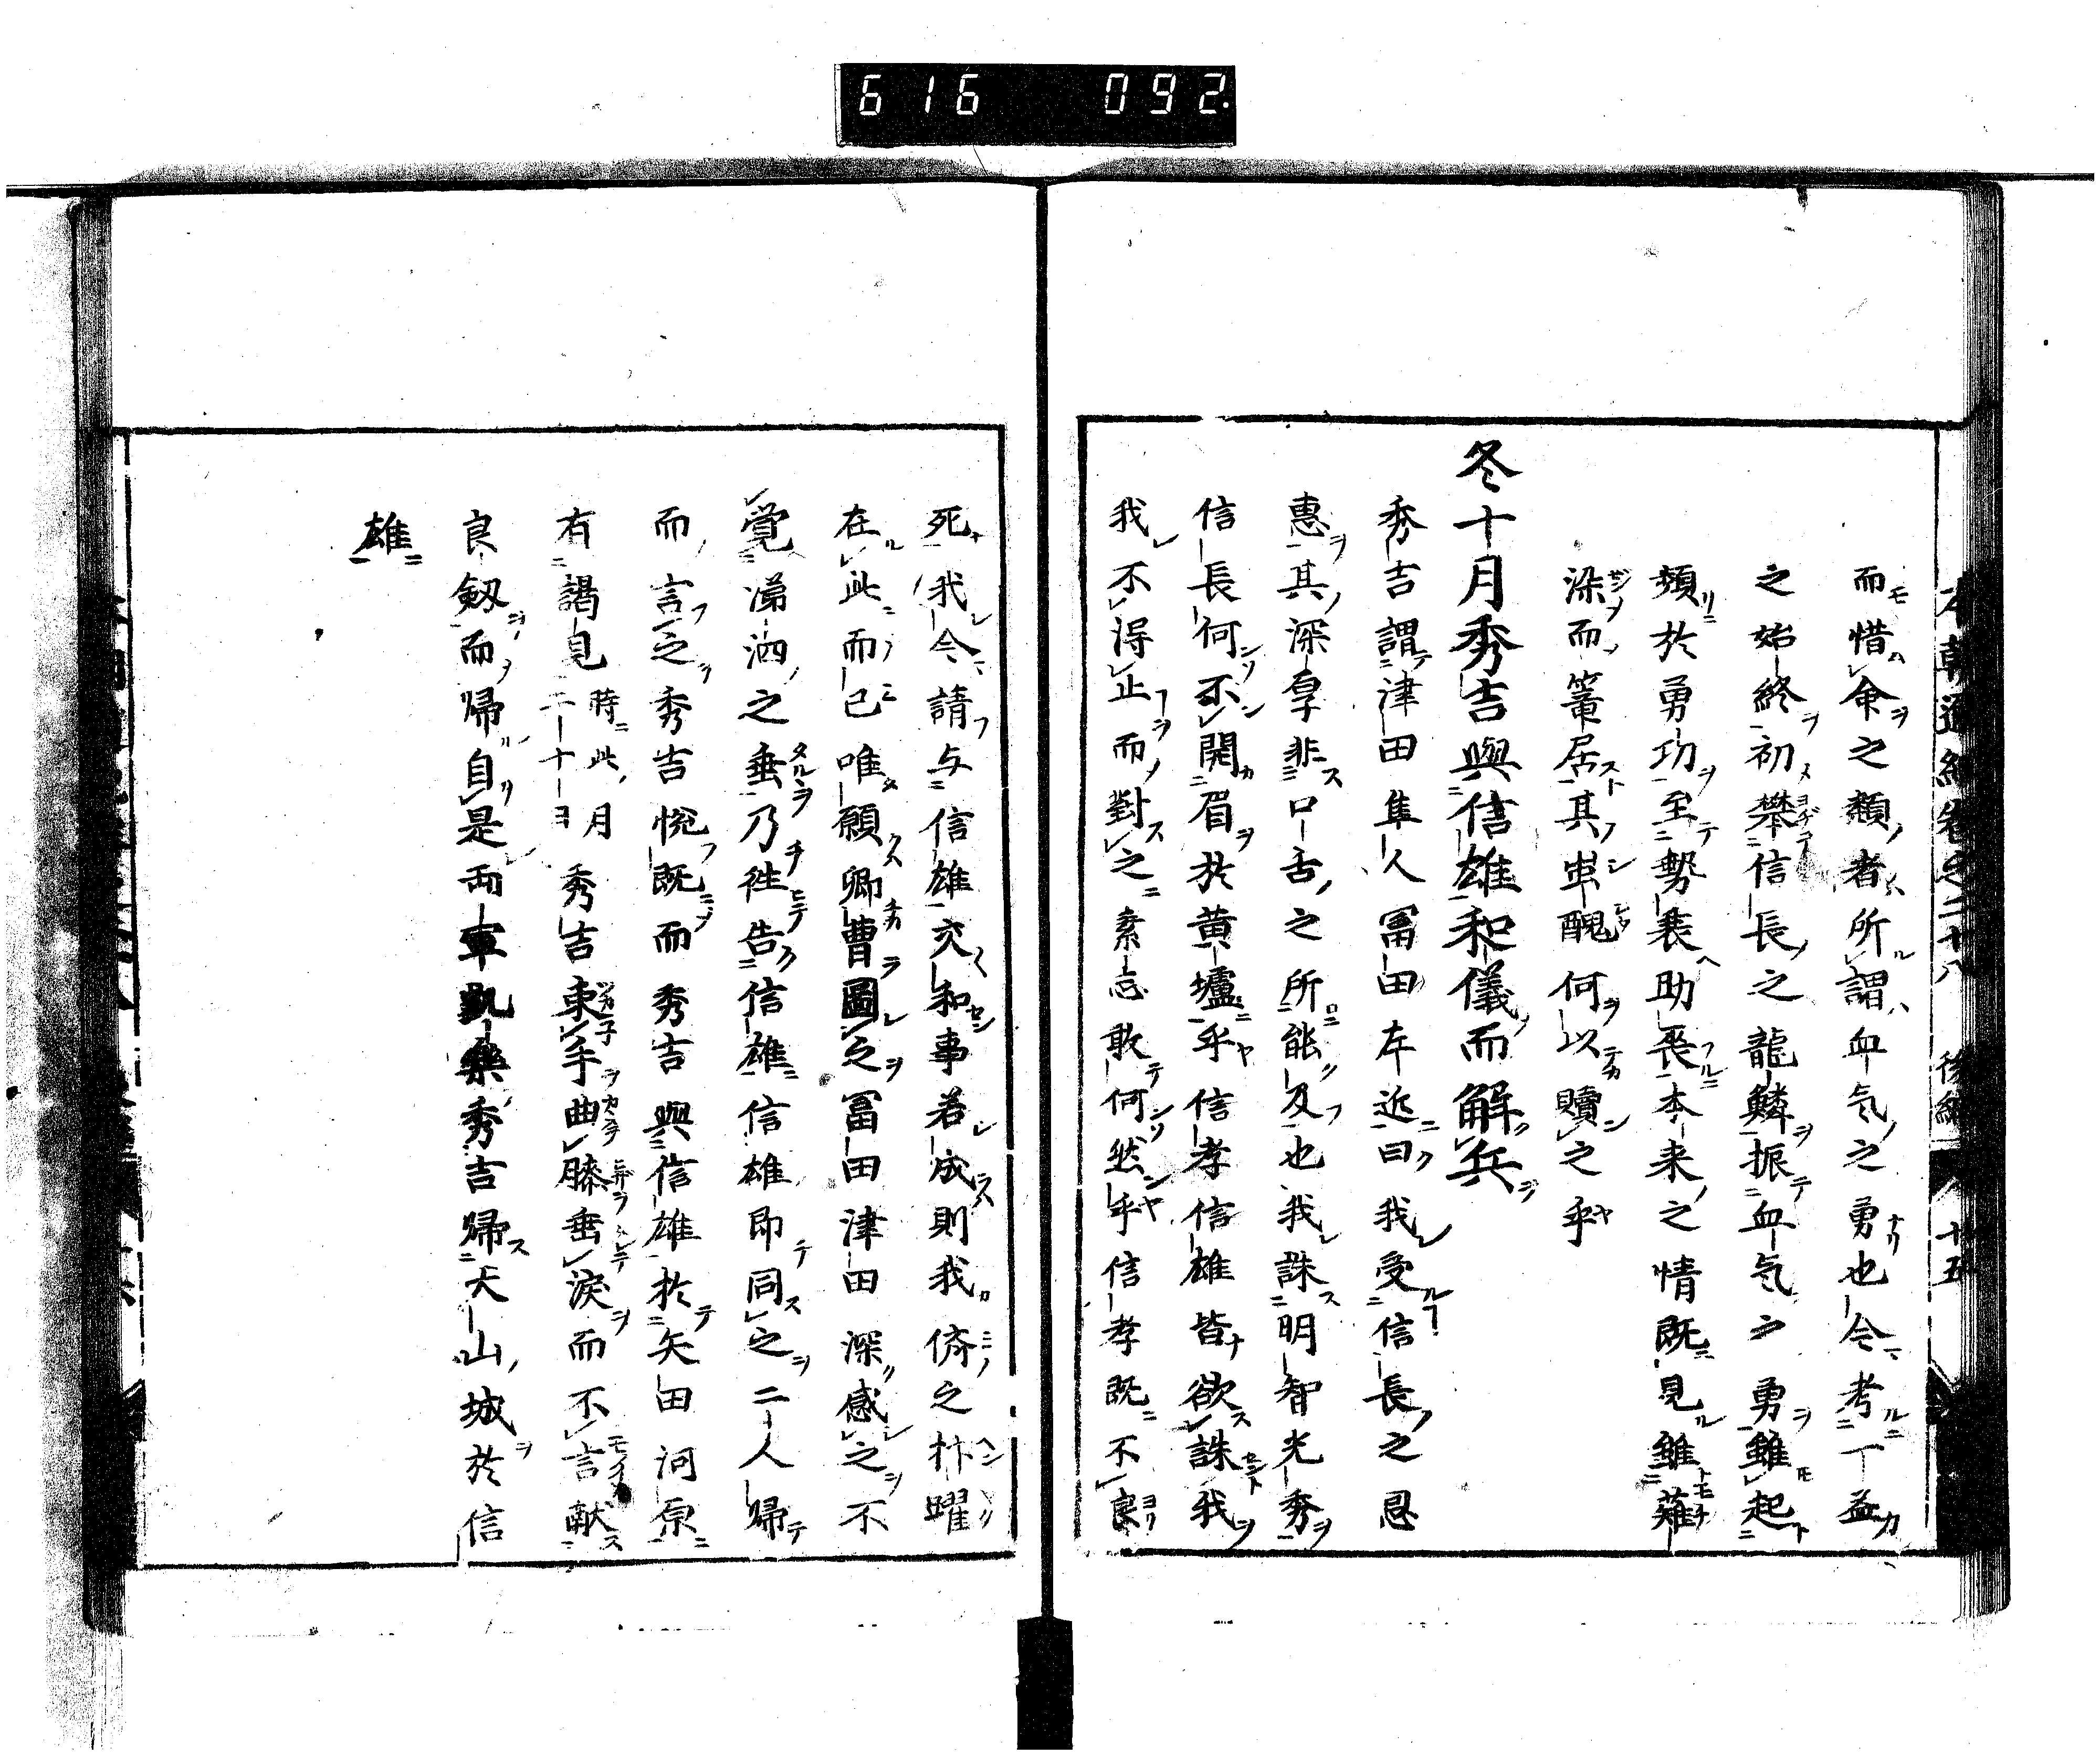 616 092
本朝通紀卷之二十八 後編 十五
而惜命之類者所謂血気之勇也今考丁益
之始終初攀信長之龍鱗振血気之勇雖起
頻於勇功至勢衰助喪本来之情既見雖薙
染而篭居其蚩醜何以贖之乎
冬十月秀吉與信雄和儀而解兵
秀吉謂津田隼人冨田左近曰我受信長之恩
惠其深厚非口舌之所能及也我誅明智光秀
信長何不開眉於黄壚乎信孝信雄皆欲誅我
我不得止而對之素志敢何然乎信孝既不良
死我今請与信雄交和事若成則我儕之抃躍
在此而已唯願卿曹圖之冨田津田深感之不
覚涕泗之垂乃徃告信雄信雄即同之二人歸
而言之秀吉悦既而秀吉與信雄於矢田河原
有謁見時此月二十一ヨ秀吉束手曲膝垂涙而不言献
良劔而歸自是両軍凱樂秀吉歸犬山城於信
雄